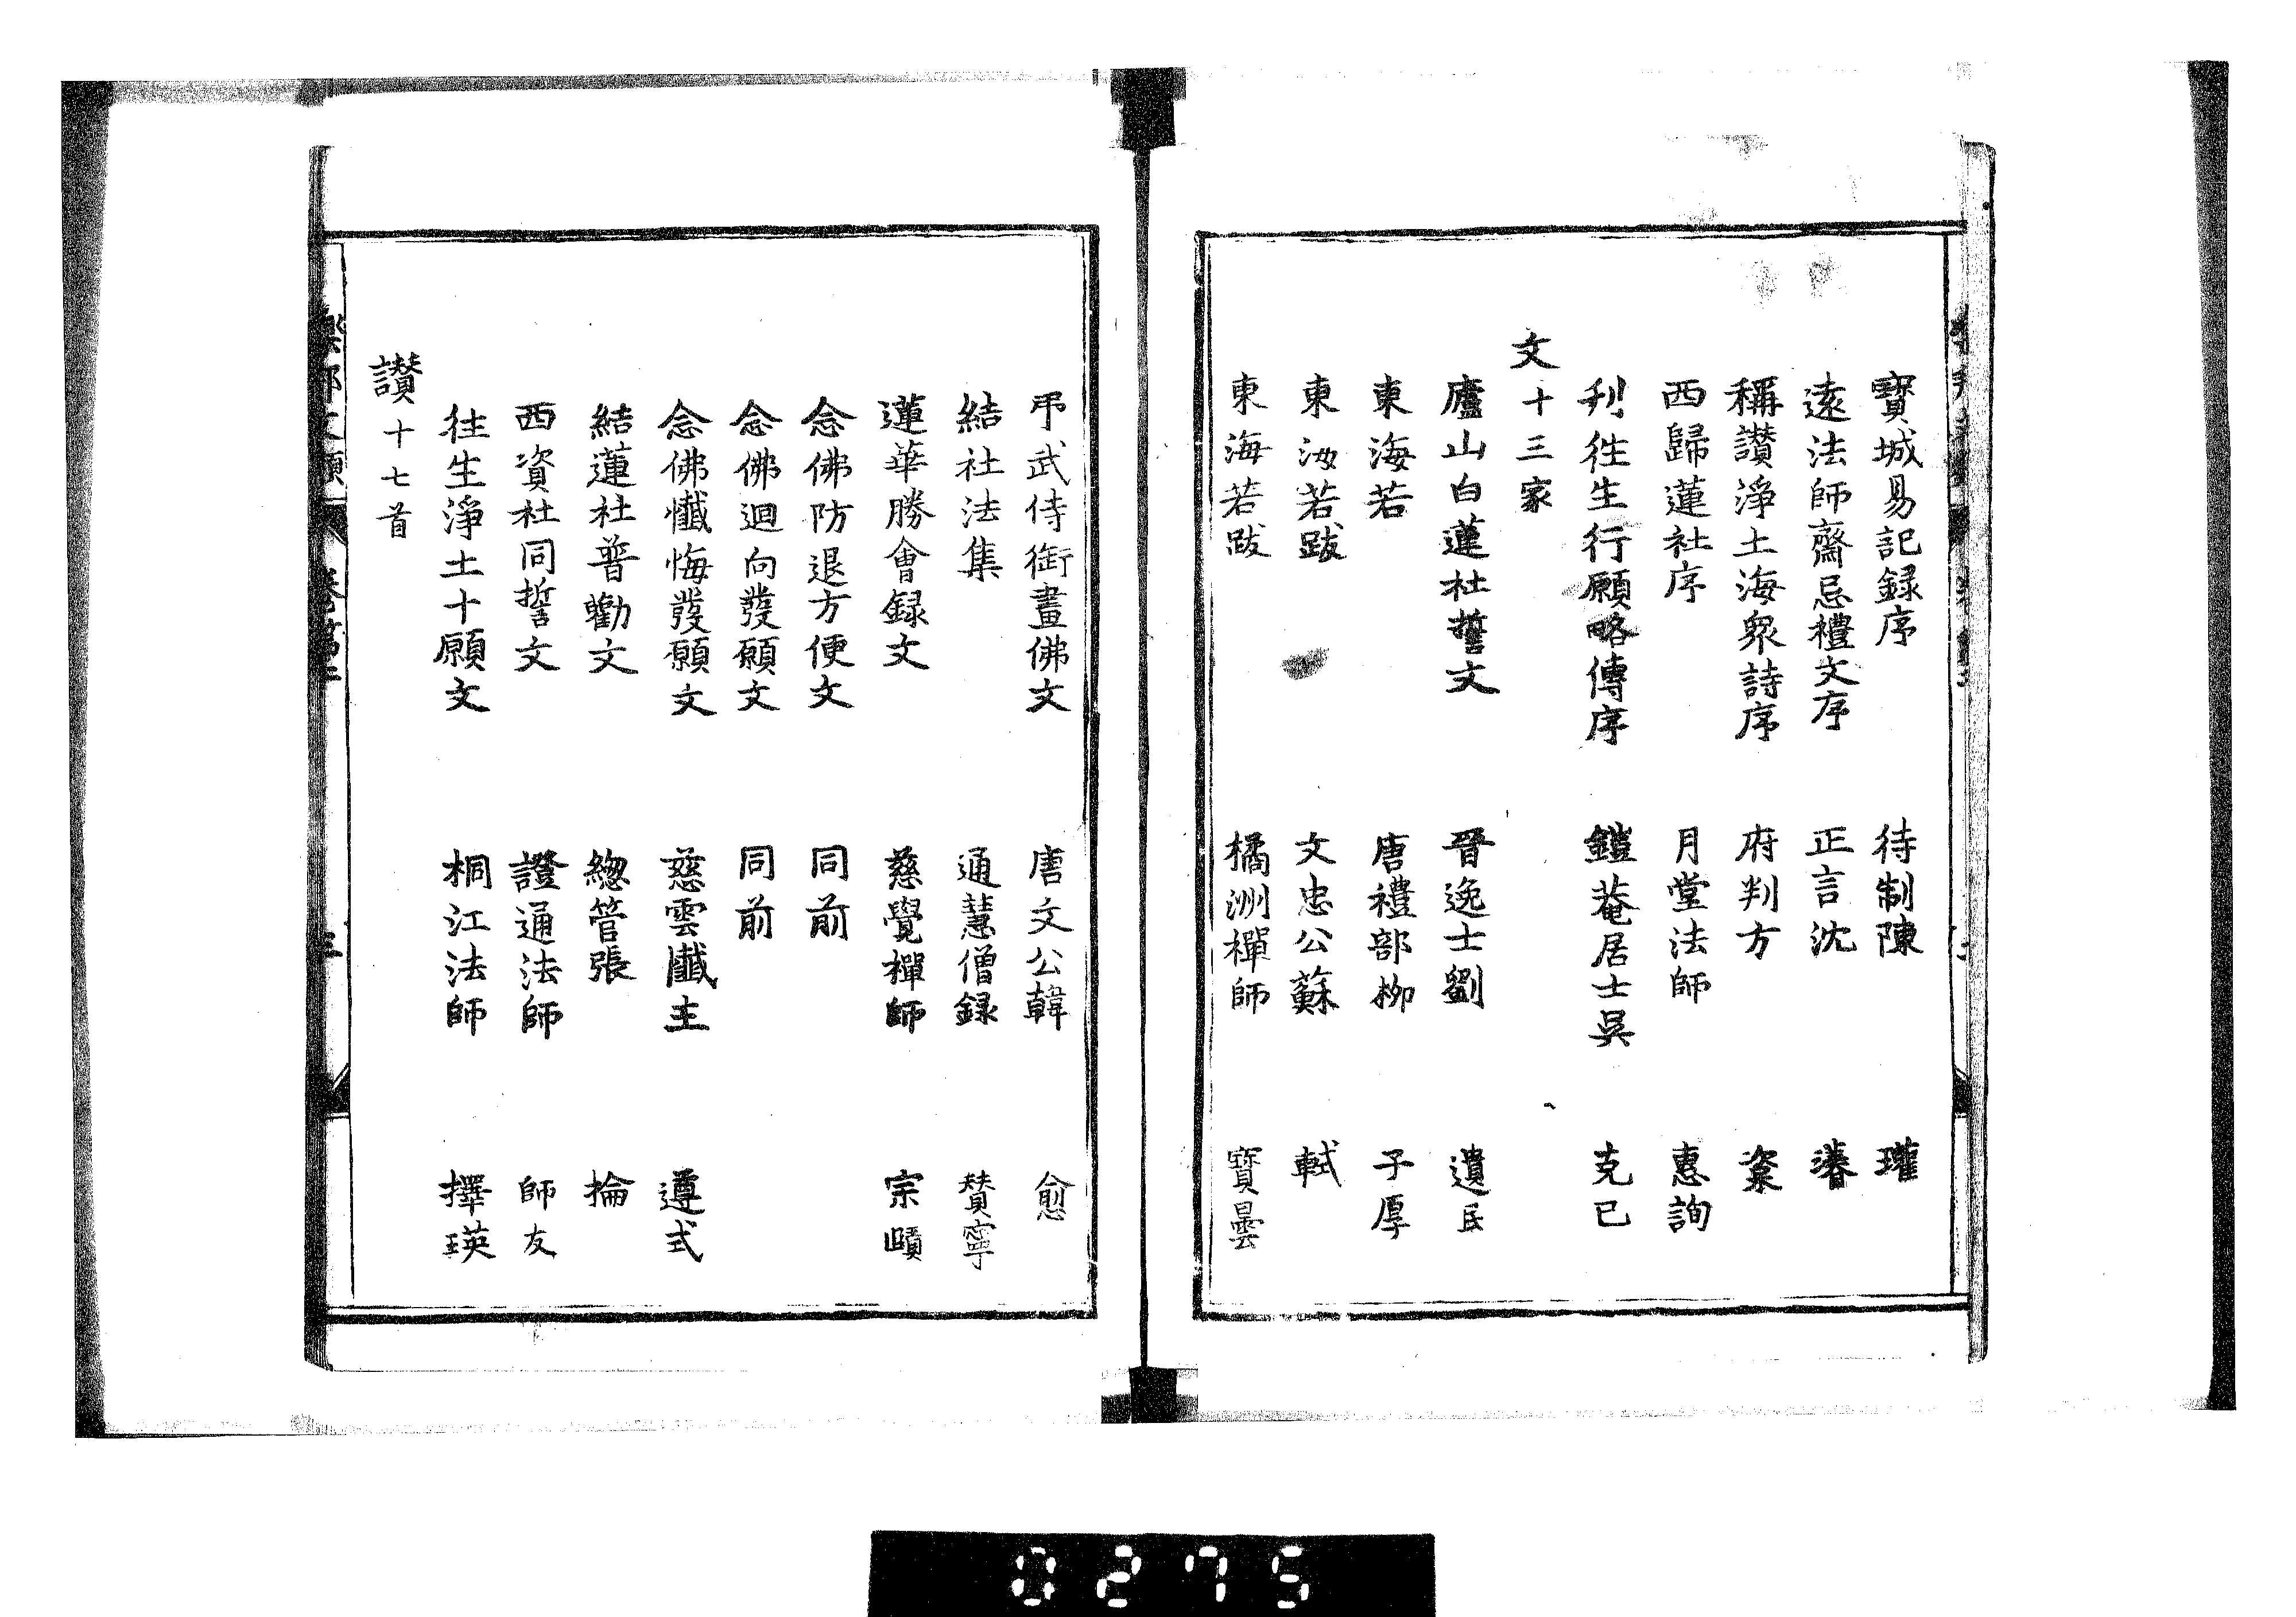 寶城易記録序 待制陳 瓘
遠法師齋忌禮文序 正言沈 濬
稱讃淨土海衆詩序 府判方 楶
西歸蓮社序 月堂法師 惠詢
刋徃生行願略傳序 鎧菴居士吳 克已
文十三家
廬山白蓮社誓文 晉逸士劉 遺民
東海若 唐禮部栁 子厚
東海若跋 文忠公蘇 軾
東海若跋 橘洲禪師 寶曇
弔武侍御畫佛文 唐文公韓 愈
結社法集 通慧僧録 賛寧
蓮華勝會録文 慈覺禪師 宗賾
念佛防退方便文 同前
念佛迴向發願文 同前
念佛懺悔發願文 慈雲懺主 遵式
結蓮社普勸文 緫管張 掄
西資社同誓文 證通法師 師友
徃生淨土十願文 桐江法師 擇瑛
讃十七首
0275